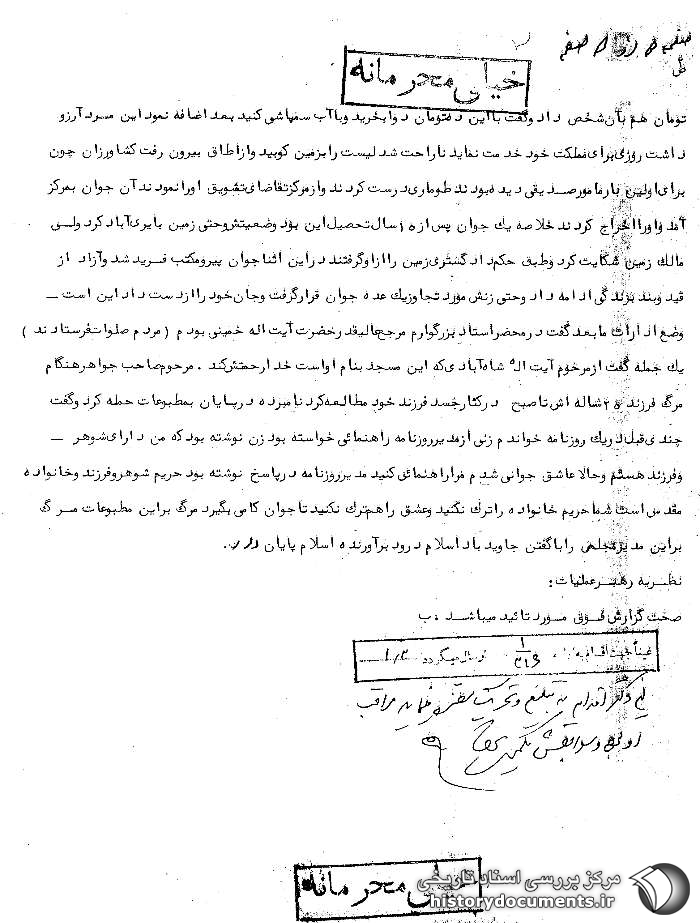 صفحه
خیلی محرمانه
تومان هم بآن شخص داد و گفت با این ده تومان دوا بخرید و با آب سمپاشی کنید بعد اضافه نمود این مرد آرزو
داشت روزی برای مملکت خود خدمت نماید ناراحت شد لیست را بزمین کوبید و از اطاق بیرون رفت کشاورزان چون
برای اولین بار مامور صدیقی دیده بودند طوماری درست کردند و از مرکز تقاضای تشویق او را نمودند آن جوان بمرکز
آمد و او را اخراج کردند خلاصه یک جوان پس از سال تحصیل این بود وضعیتش و حتی زمین بایری آباد کرد ولی
مالک زمین شکایت کرد و طبق حکم دادگستری زمین را از او گرفتند در این اثنا جوان پیرو مکتب فرید شد و آزاد از
قید و بند بزندگی ادامه داد و حتی زنش مورد تجاوز یک عده جوان قرار گرفت و جان خود را از دست داد این است ـ
وضع ادارات ما بعد گفت در محضر استاد بزرگوارم مرجع عالیقدر حضرت آیت اله خمینی بودم ( مردم صلوات فرستادند )
یک جمله گفت از مرحوم آیت اله شاه آبادی که این مسجد بنام اواست خدا رحمتش کند . مرحوم صاحب جواهر هنگام
مرگ فرزند ساله اش تا صبح در کنار جسد فرزند خود مطالعه کرد نامبرده در پایان بمطبوعات حمله کرد و گفت
چندی قبل در یک روزنامه خواندم زنی از مدیر روزنامه راهنمائی خواسته بود زن نوشته بود که من دارای شوهر ـ
و فرزند هستم و حالا عاشق جوانی شدم مرا راهنمائی کنید مدیر روزنامه در پاسخ نوشته بود حریم شوهر و فرزند و خانواده
مقدس است شما حریم خانواده را ترک نکنید و عشق را هم ترک نکنید تا جوان کامی بگیرد مرگ بر این مطبوعات مرگ
بر این مدیر مجلس را با گفتن جاوید باد اسلام درود بر آورنده اسلام پایان داد.
نظریه رهبر عملیات :
صحت گزارش فوق مورد تائید میباشد . ب
۳۱۶ میگردد
مراقب
خیلی محرمانه
مرکز بررسی اسناد تاریخی
historydocuments.ir